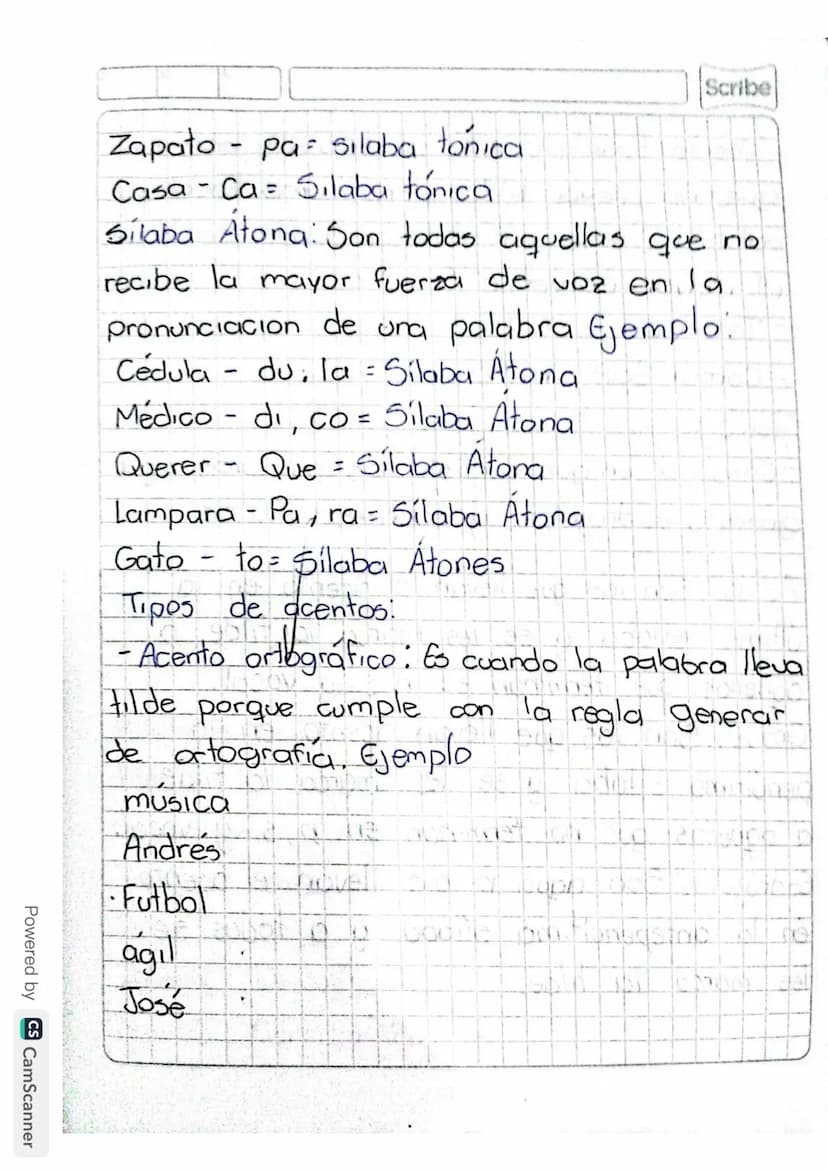 Scribe
Zapato - pa = sılaba tónıca
Casa - Ca = Sılaba tónıca
Sílaba Átona: Son todas aquellas que no
recibe la mayor fuerza de voz en la
pronunciacion de una palabra Ejemplo:
Cédula - du, la = Sílaba Átona
Médico - di, co = Sílaba Átona
Querer - Que = Sílaba Átona
Lampara - Pa, ra = Sílaba Átona
Gato - to = Sílaba Átones
Tipos de acentos:
- Acento ortográfico: Es cuando la palabra lleva
tilde porque cumple con la regla generar
de ortografía. Ejemplo
música
Andrés
Futbol
ágil
José
Powered by CS CamScanner